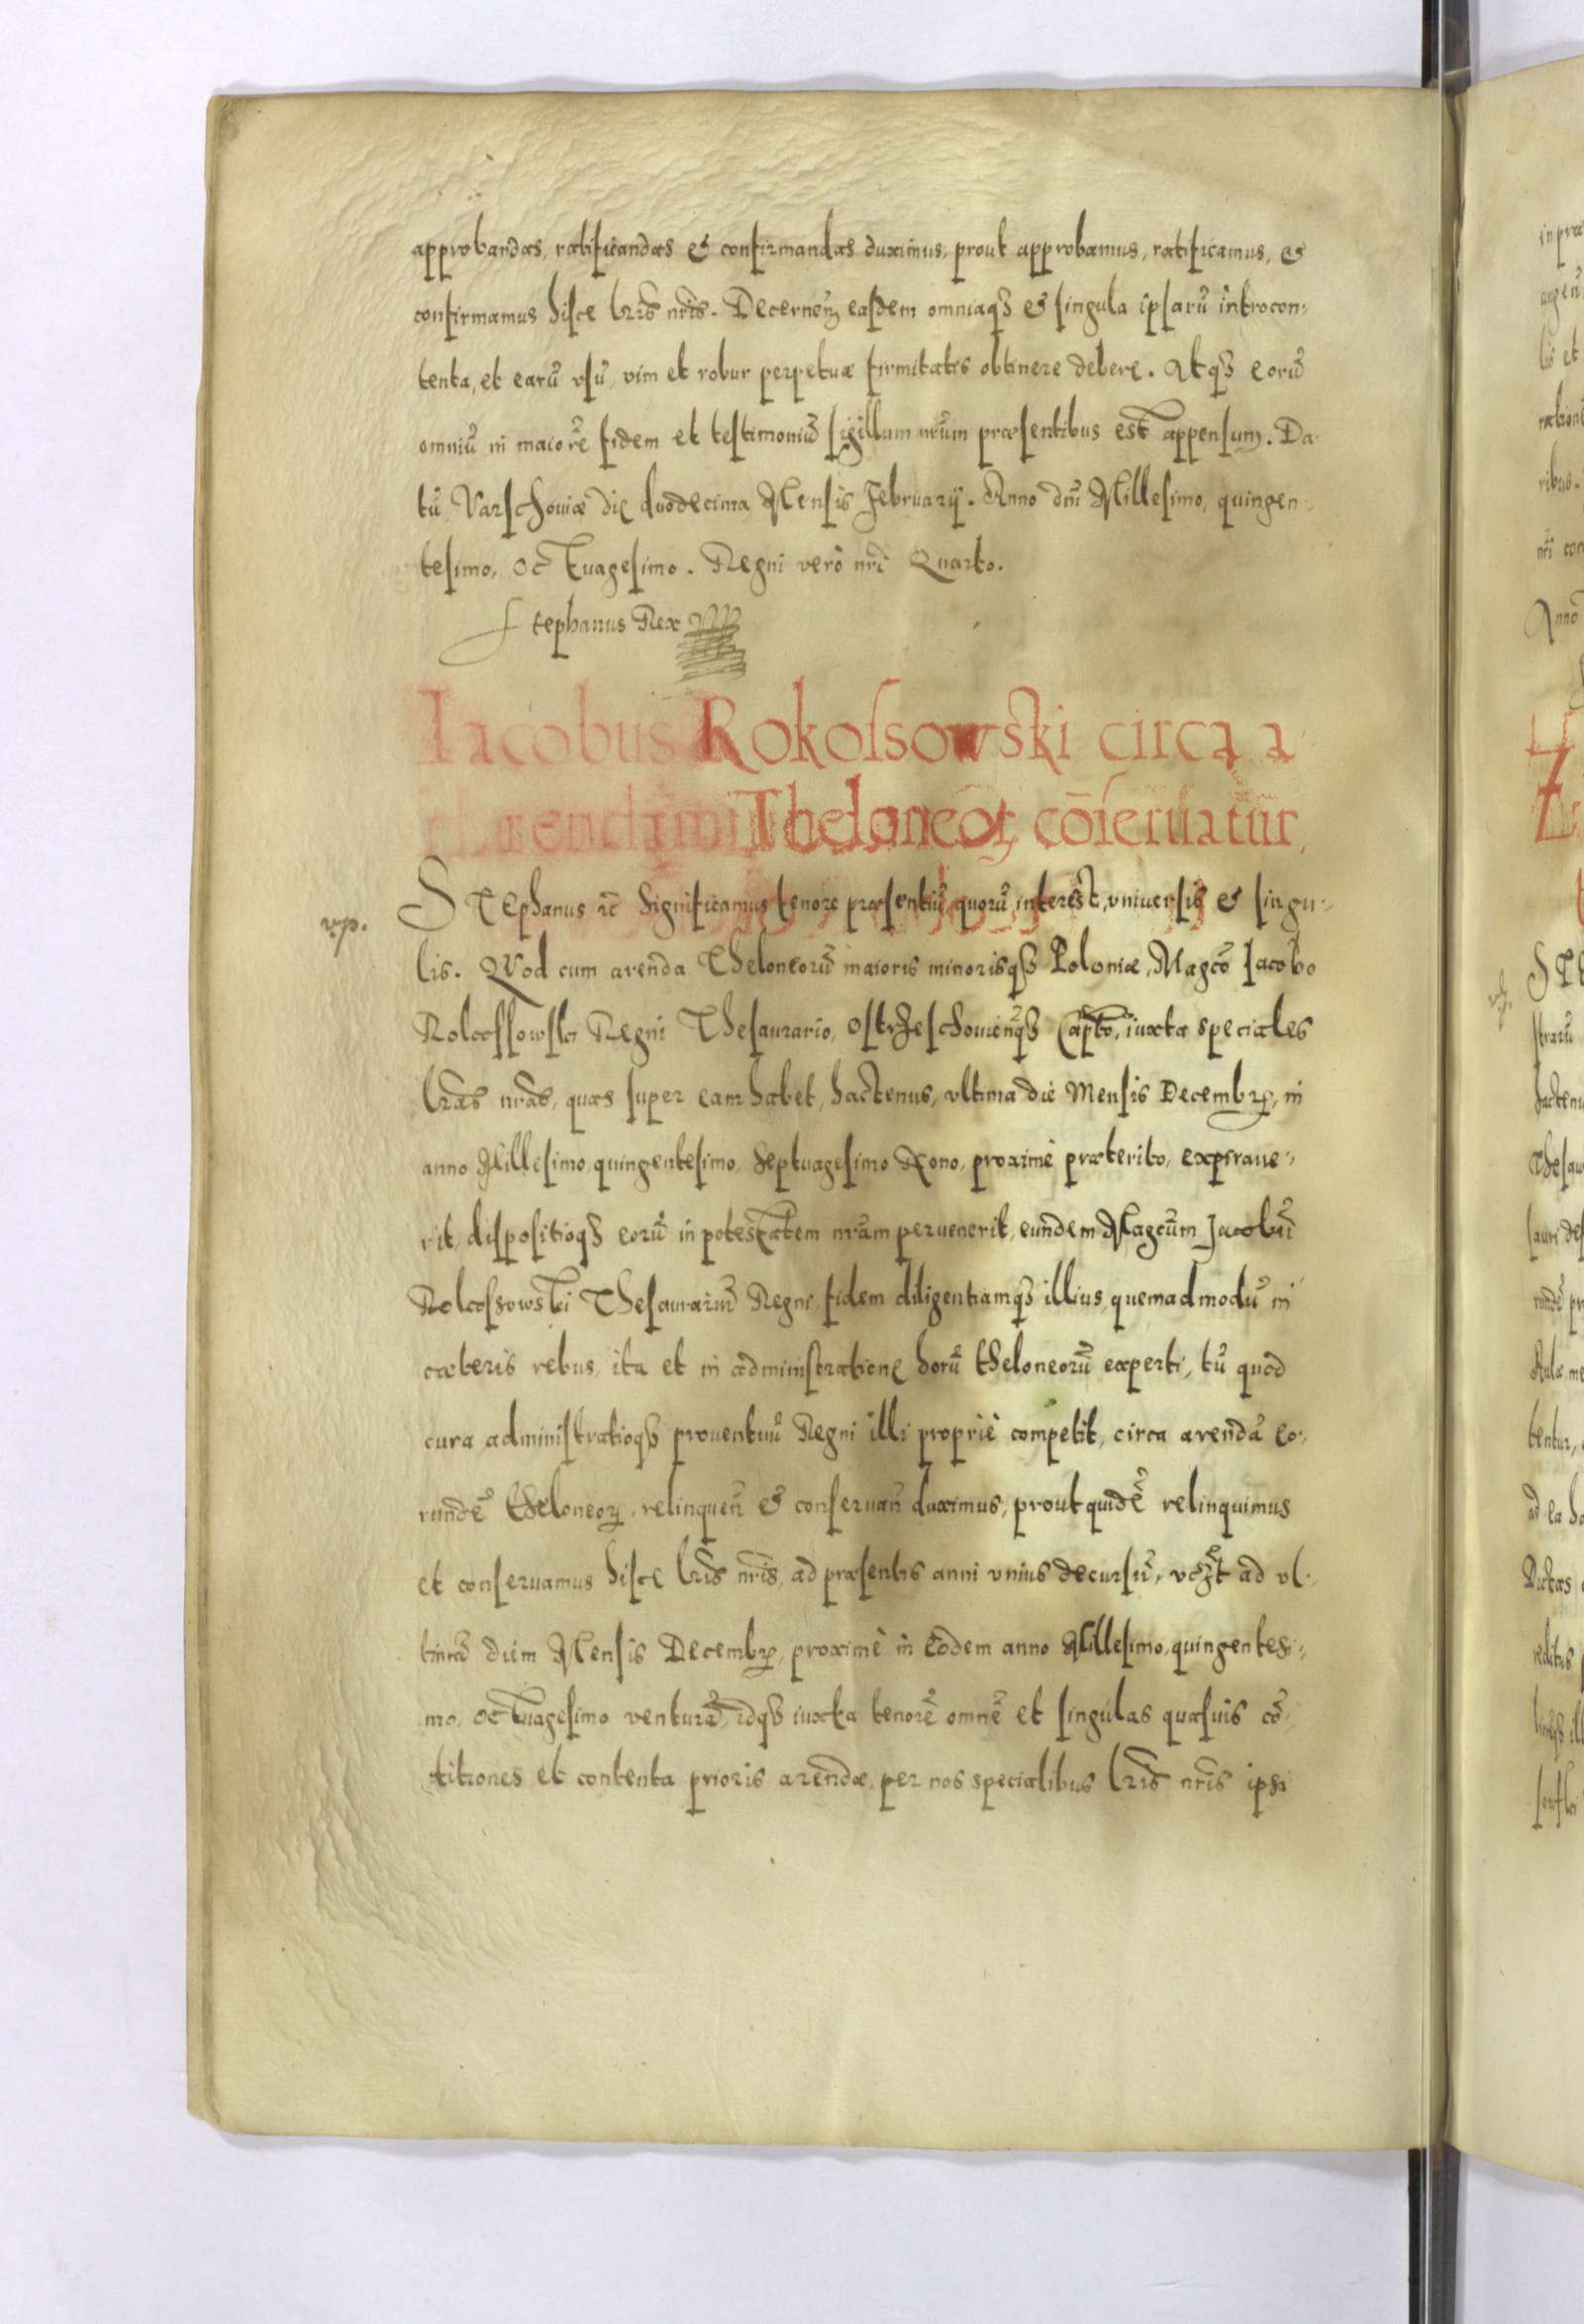 approbandas, ratificandas et confirmandas duximus, prout approbamus, ratificamus, et
confirmamus hisce lris nris. Decernen easdem omniaqʒ et singula ipsarũ introcon-
tenta, et earũ usũ, vim et robur perpetuæ firmitatis obtinere debere. Atqʒ eorũ
omniũ in maiorẽ fidem et testimoniũ sigillum nrum præsentibus est appensum. Da-
tũ Varschoviæ die duodecima Mensis Februarij. Anno dni Millesimo, quingen-
tesimo, octuagesimo. Regni vero nri Quarto.
Stephanus Rex
Iacobus Rokossowski circa a
rendam Theloneoꝝ cõseruatur.
vp.
STephanus rc Significamus tenore præsentiũ quorũ interest, vniuersis et singu-
lis. Quod cum arenda Theloneorũ maioris minorisqʒ Poloniæ, Magco Iacobo
Rokossowski Regni Thesaurario, Ostrzeschouienqʒ Capto, iuxta speciales
lras nras, quas super eam habet, hactenus, vltima die Mensis Decembꝝ, in
anno Millesimo, quingentesimo, Septuagesimo Nono, proximè præterito, expiraue-
rit, dispositioqʒ eorũ in potestatem nram peruenerit, eundem Magcum Jacobũ
Rokossowski Thesaurariũ Regni, fidem diligentiamqʒ illius, quemadmodũ in
cæteris rebus, ita et in administratione horũ theloneorũ experti, tũ quod
cura administratioqʒ prouentuũ Regni illi propriè competit, circa arendã eo-
rundẽ theloneoꝝ, relinquen et conseruan duximus, prout quidẽ relinquimus
et conseruamus hisce lris nris, ad præsentis anni vnius decursũ, vczt ad vl-
timã diem Mensis Decembꝝ, proximè in eodem anno Millesimo, quingentesi-
mo, octuagesimo venturã, idqʒ iuxta tenorẽ omnẽ et singulas quasuis cõ-
titiones et contenta prioris arendæ, per nos specialibus lris nris ipsi